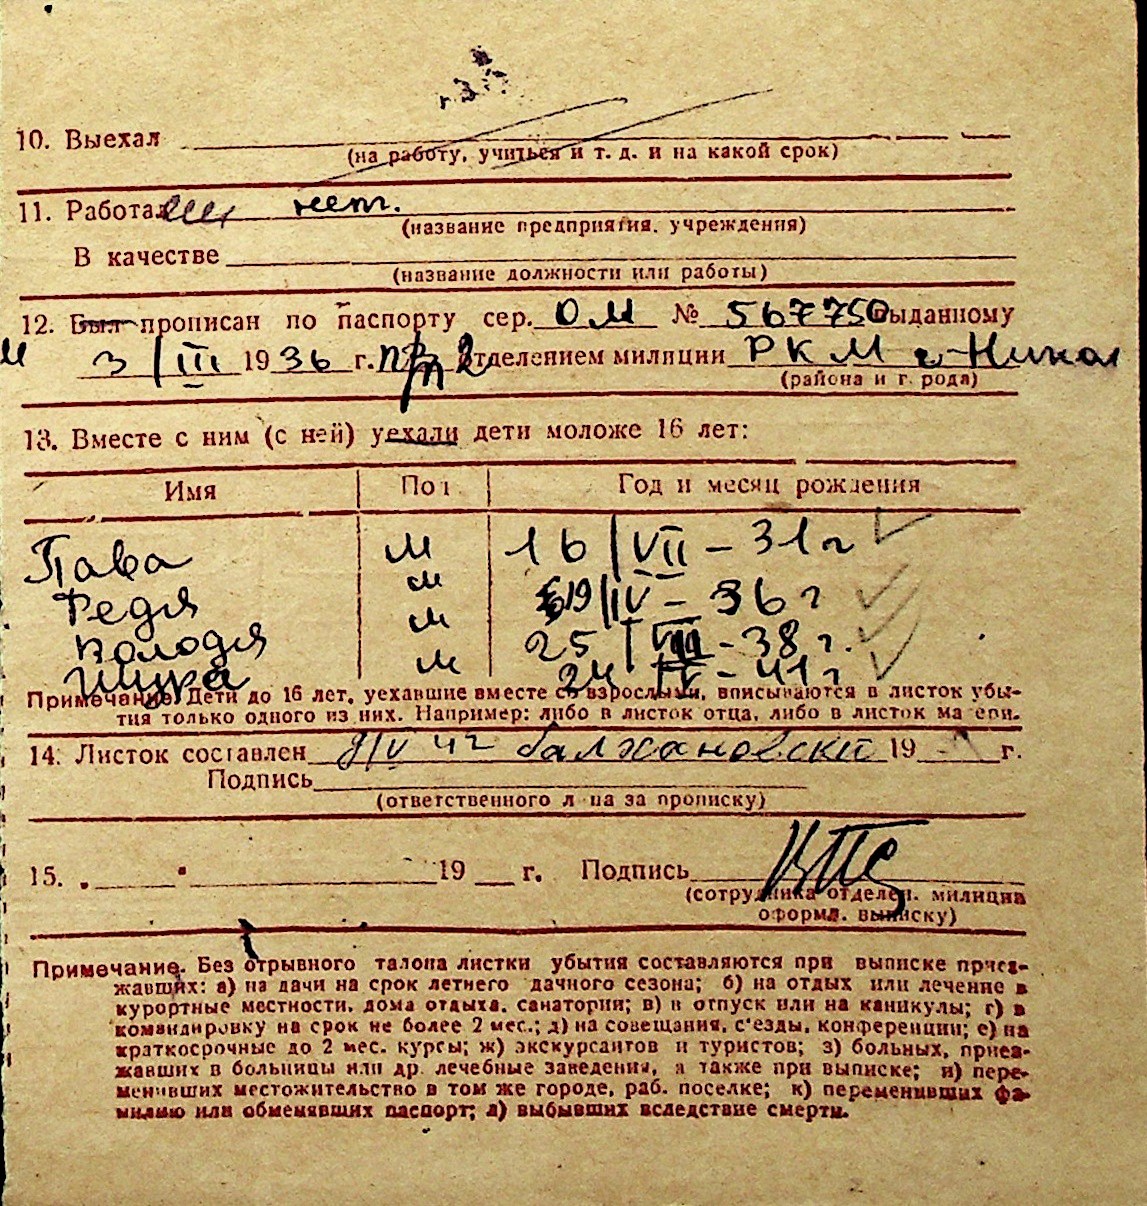 10. Выехал
(на работу, учиться и т. д. и на какой срок)
11. Работал нет.
(название предприятия, учреждения)
В качестве
(название должности или работы)
12. Был прописан по паспорту сер. ОМ № 567750 выданному
3/III 1936 г. отделением милиции РКМ г. Никол
(района и города)
13. Вместе с ним (с ней) уехали дети моложе 16 лет:
Имя Пол Год и месяц рождения
Пава м 16/VII - 31 г
Федя м 19/IV - 36 г
Володя м 25/VIII - 38 г.
Шура м 24 IV - 41 г.
Примечание. Дети до 16 лет, уехавшие вместе со взрослыми, вписываются в листок убы-
тия только одного из них. Например: либо в листок отца, либо в листок матери.
14. Листок составлен 9/V 42 19 г.
Подпись
(ответственного лица за прописку)
15. „ " 19 г. Подпись
(сотрудника отделен. милиции
оформл. выписку)
Примечание. Без отрывного талона листки убытия составляются при выписке приез-
жавших: а) на дачи на срок летнего дачного сезона; б) на отдых или лечение в
курортные местности, дома отдыха, санатории; в) в отпуск или на каникулы; г) в
командировку на срок не более 2 мес.; д) на совещания, с'езды, конференции; е) на
краткосрочные до 2 мес. курсы; ж) экскурсантов и туристов; з) больных, приез-
жавших в больницы или др. лечебные заведения, а также при выписке; и) пере-
менивших местожительство в том же городе, раб. поселке; к) переменивших фа-
милию или обменявших паспорт; л) выбывших вследствие смерти.